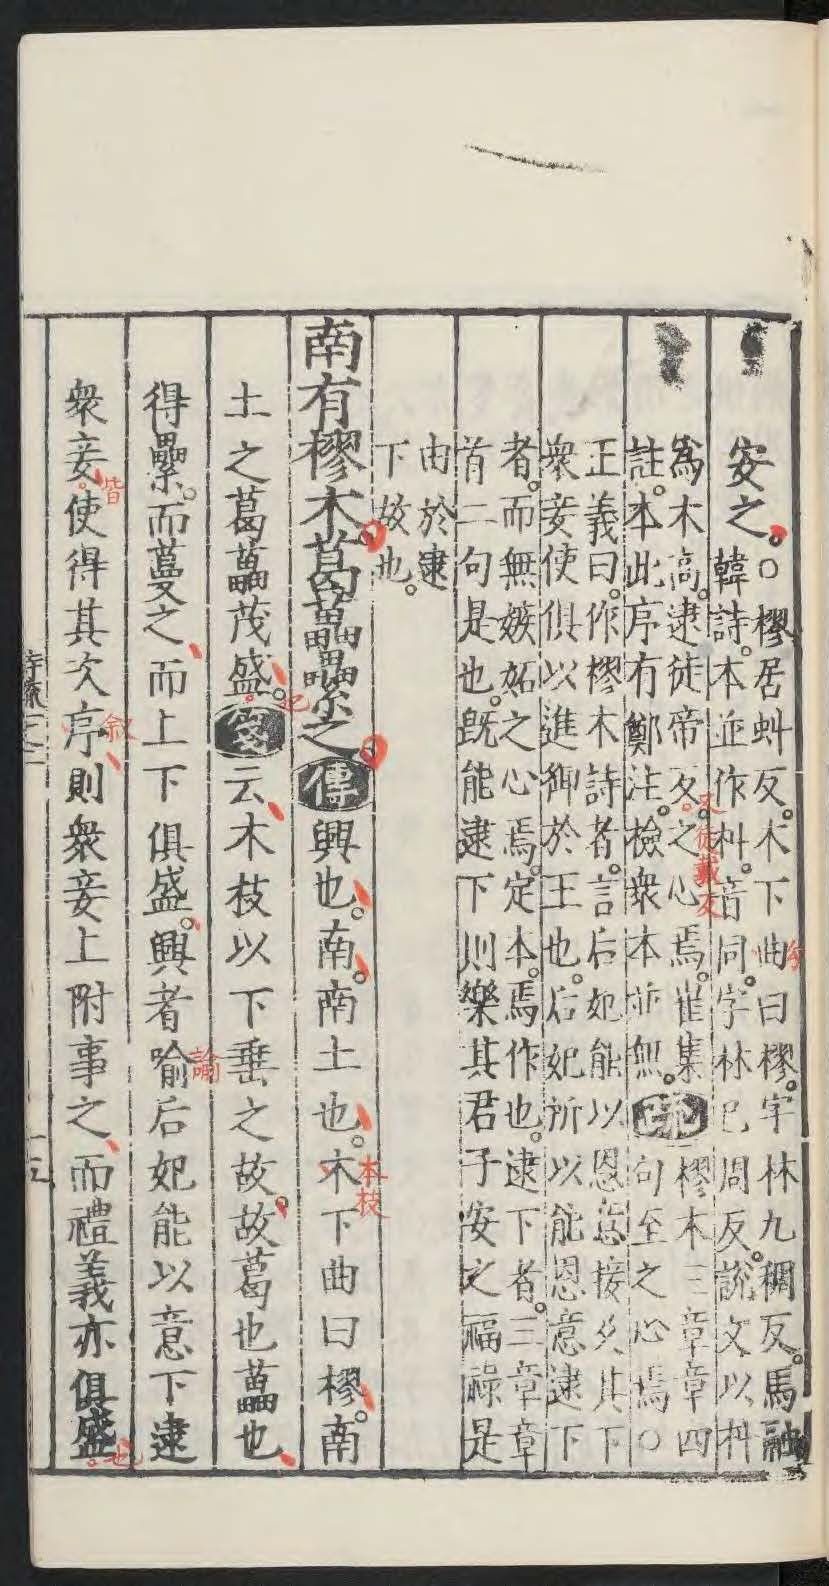 安之。○樛居虯反。木下曲曰樛。字林九稠反。馬融
韓詩。本並作朻。音同。字林己周反。說文以朻
爲木高。逮徒帝反。之心焉。崔集
註。本此序有鄭注。檢衆本並無。
疏
樛木三章章四
句至之心焉○
正義曰。作樛木詩者。言后妃能以恩意接及其下
衆妾使俱以進御於王也。后妃所以能恩意逮下
者。而無嫉妬之心焉。定本。焉作也。逮下者。三章章
首二句是也。旣能逮下則樂其君子安之福祿是
由於逮
下故也。
南有樛木。葛藟纍之。傳興也。南。南土也。木下曲曰樛。南
土之葛藟茂盛。箋云木枝以下垂之故。故葛也藟也
得纍。而蔓之而上下俱盛。興者喻后妃能以意下逮
衆妾。使得其次序則衆妾上附事之而禮義亦俱盛。
又徒戴反
本枝
也
諭
皆
敘
也